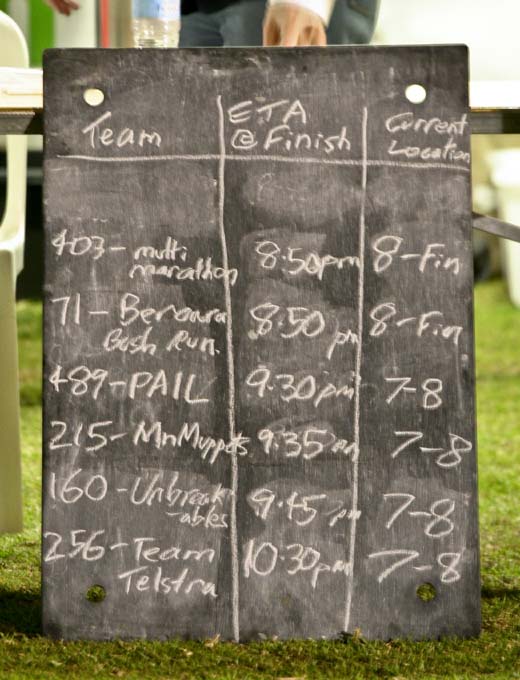 Team ETA @ Finish Current Location
403- multi marathon 8:50pm 8-Fin
71- Berowra Bush Run. 8:50 pm 8-Fin
489-PAIL 9:30pm 7-8
215-MnMuppets 9:35pm 7-8
160-Unbreak-ables 9:45pm 7-8
256-Team Telstra 10:30pm 7-8